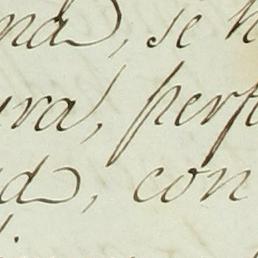 na, se h
ura, perf
d, con